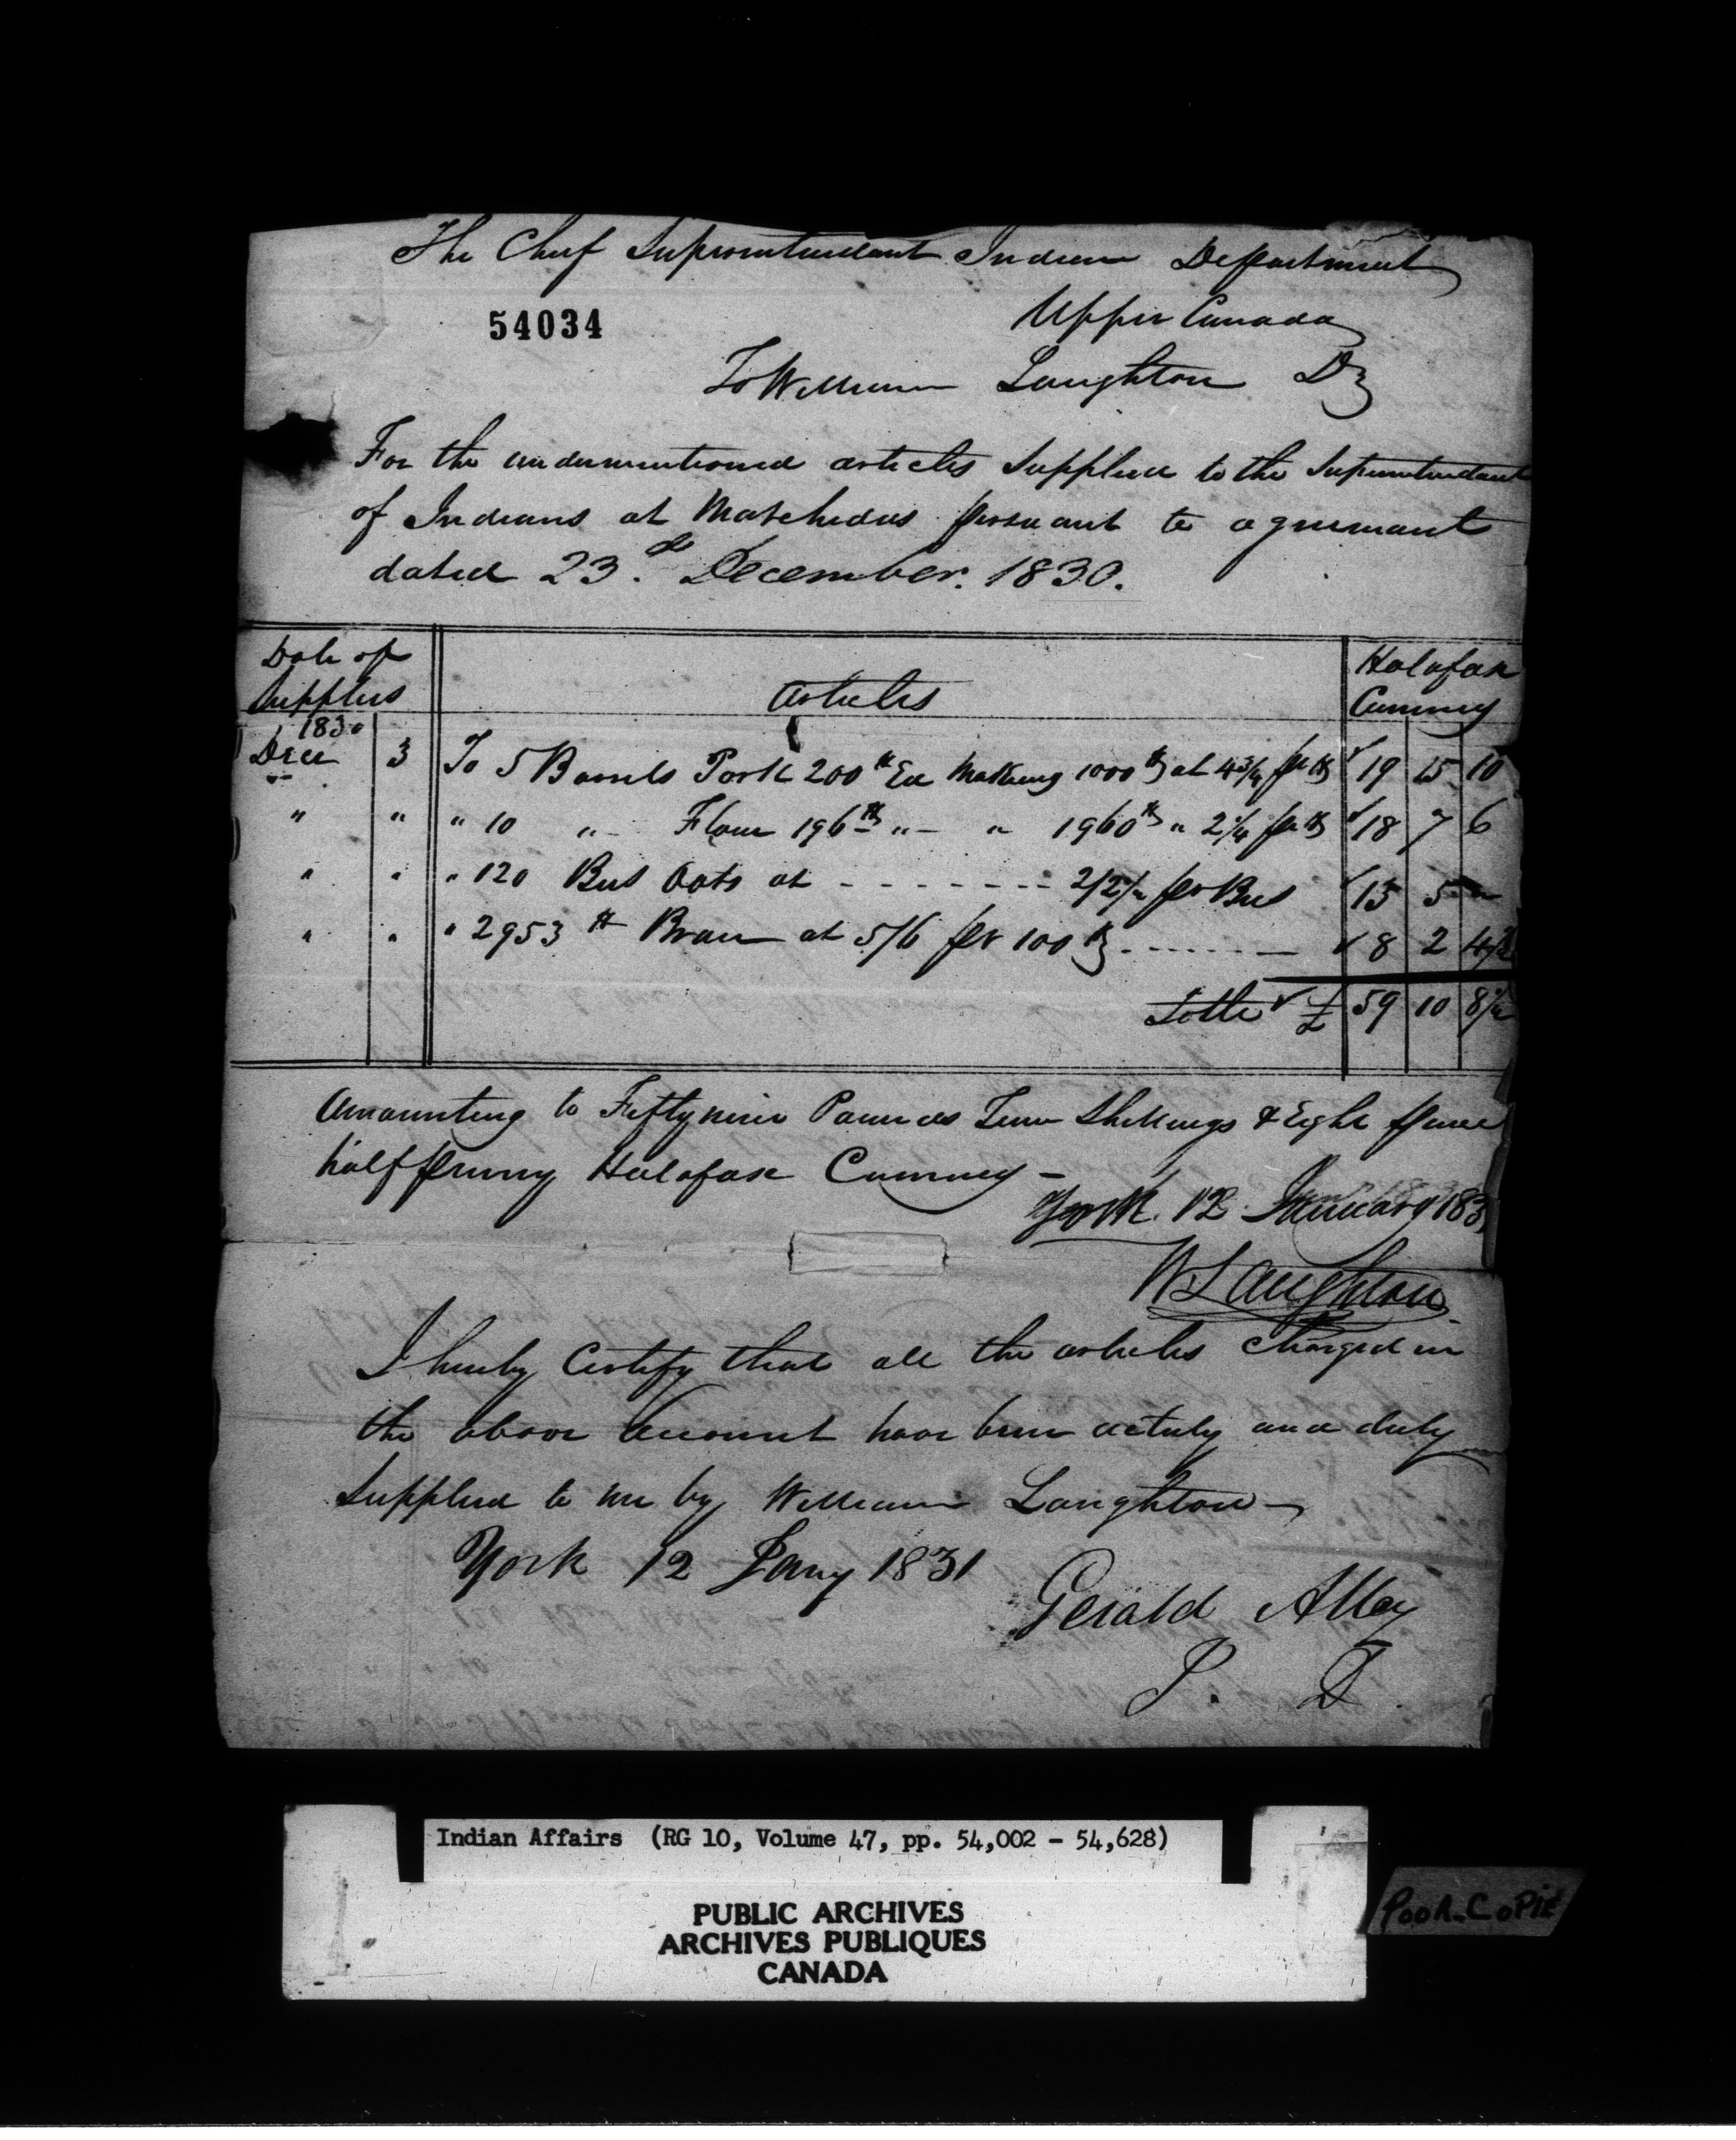 The Chief Superintendant Indian Department
54034
Upper Canada
To William Laughton Dr
For the undermentioned articles Supplied to the Superintendant
of Indians at Matchedus persuant to agreemant
dated 23.d December. 1830.
Date of Supplies
Articles
Halafax Currency
1830
Decr 3 To 5 Barrels Pork 200 lb Ea Making 1000 lb at 4 3/4 pr lb 19 15 10
" " " 10 " Flour 196 lb " " 1960 lb " 2 1/4 pr lb 18 7 6
" " " 120 Bus Oats at - - - - - - - 2/2 1/2 pr Bus 13 5 -
" " " 2953 lb Bran at 5/6 pr 100 lb - - - - - - 8 2 4 1/2
Totle £ 59 10 8 1/2
Amounting to Fifty nine Pounds Tenn Shillings & Eight pence
half penny Halafax Currency -
York. 12 January 183
W Laughton
I hereby Certify that all the articles Charged in
the above Account have been actuly and duly
Supplied to me by William Laughton -
York 12 Jany 1831
Gerald Alley
Indian Affairs (RG 10, Volume 47, pp. 54,002 - 54,628)
PUBLIC ARCHIVES
ARCHIVES PUBLIQUES
CANADA
Poor Copie